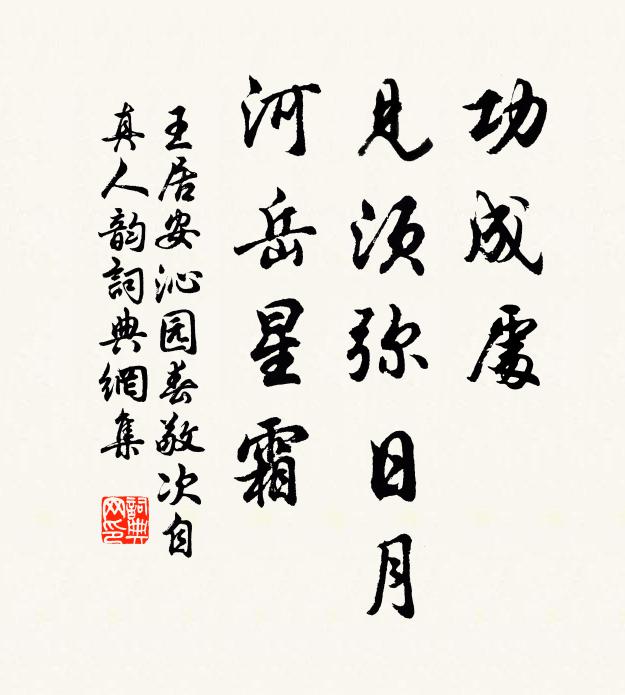 功成處
见须弥日月
河岳星霜
王居安沁园春敬次自
真人韵詞典網集
詞典
网印